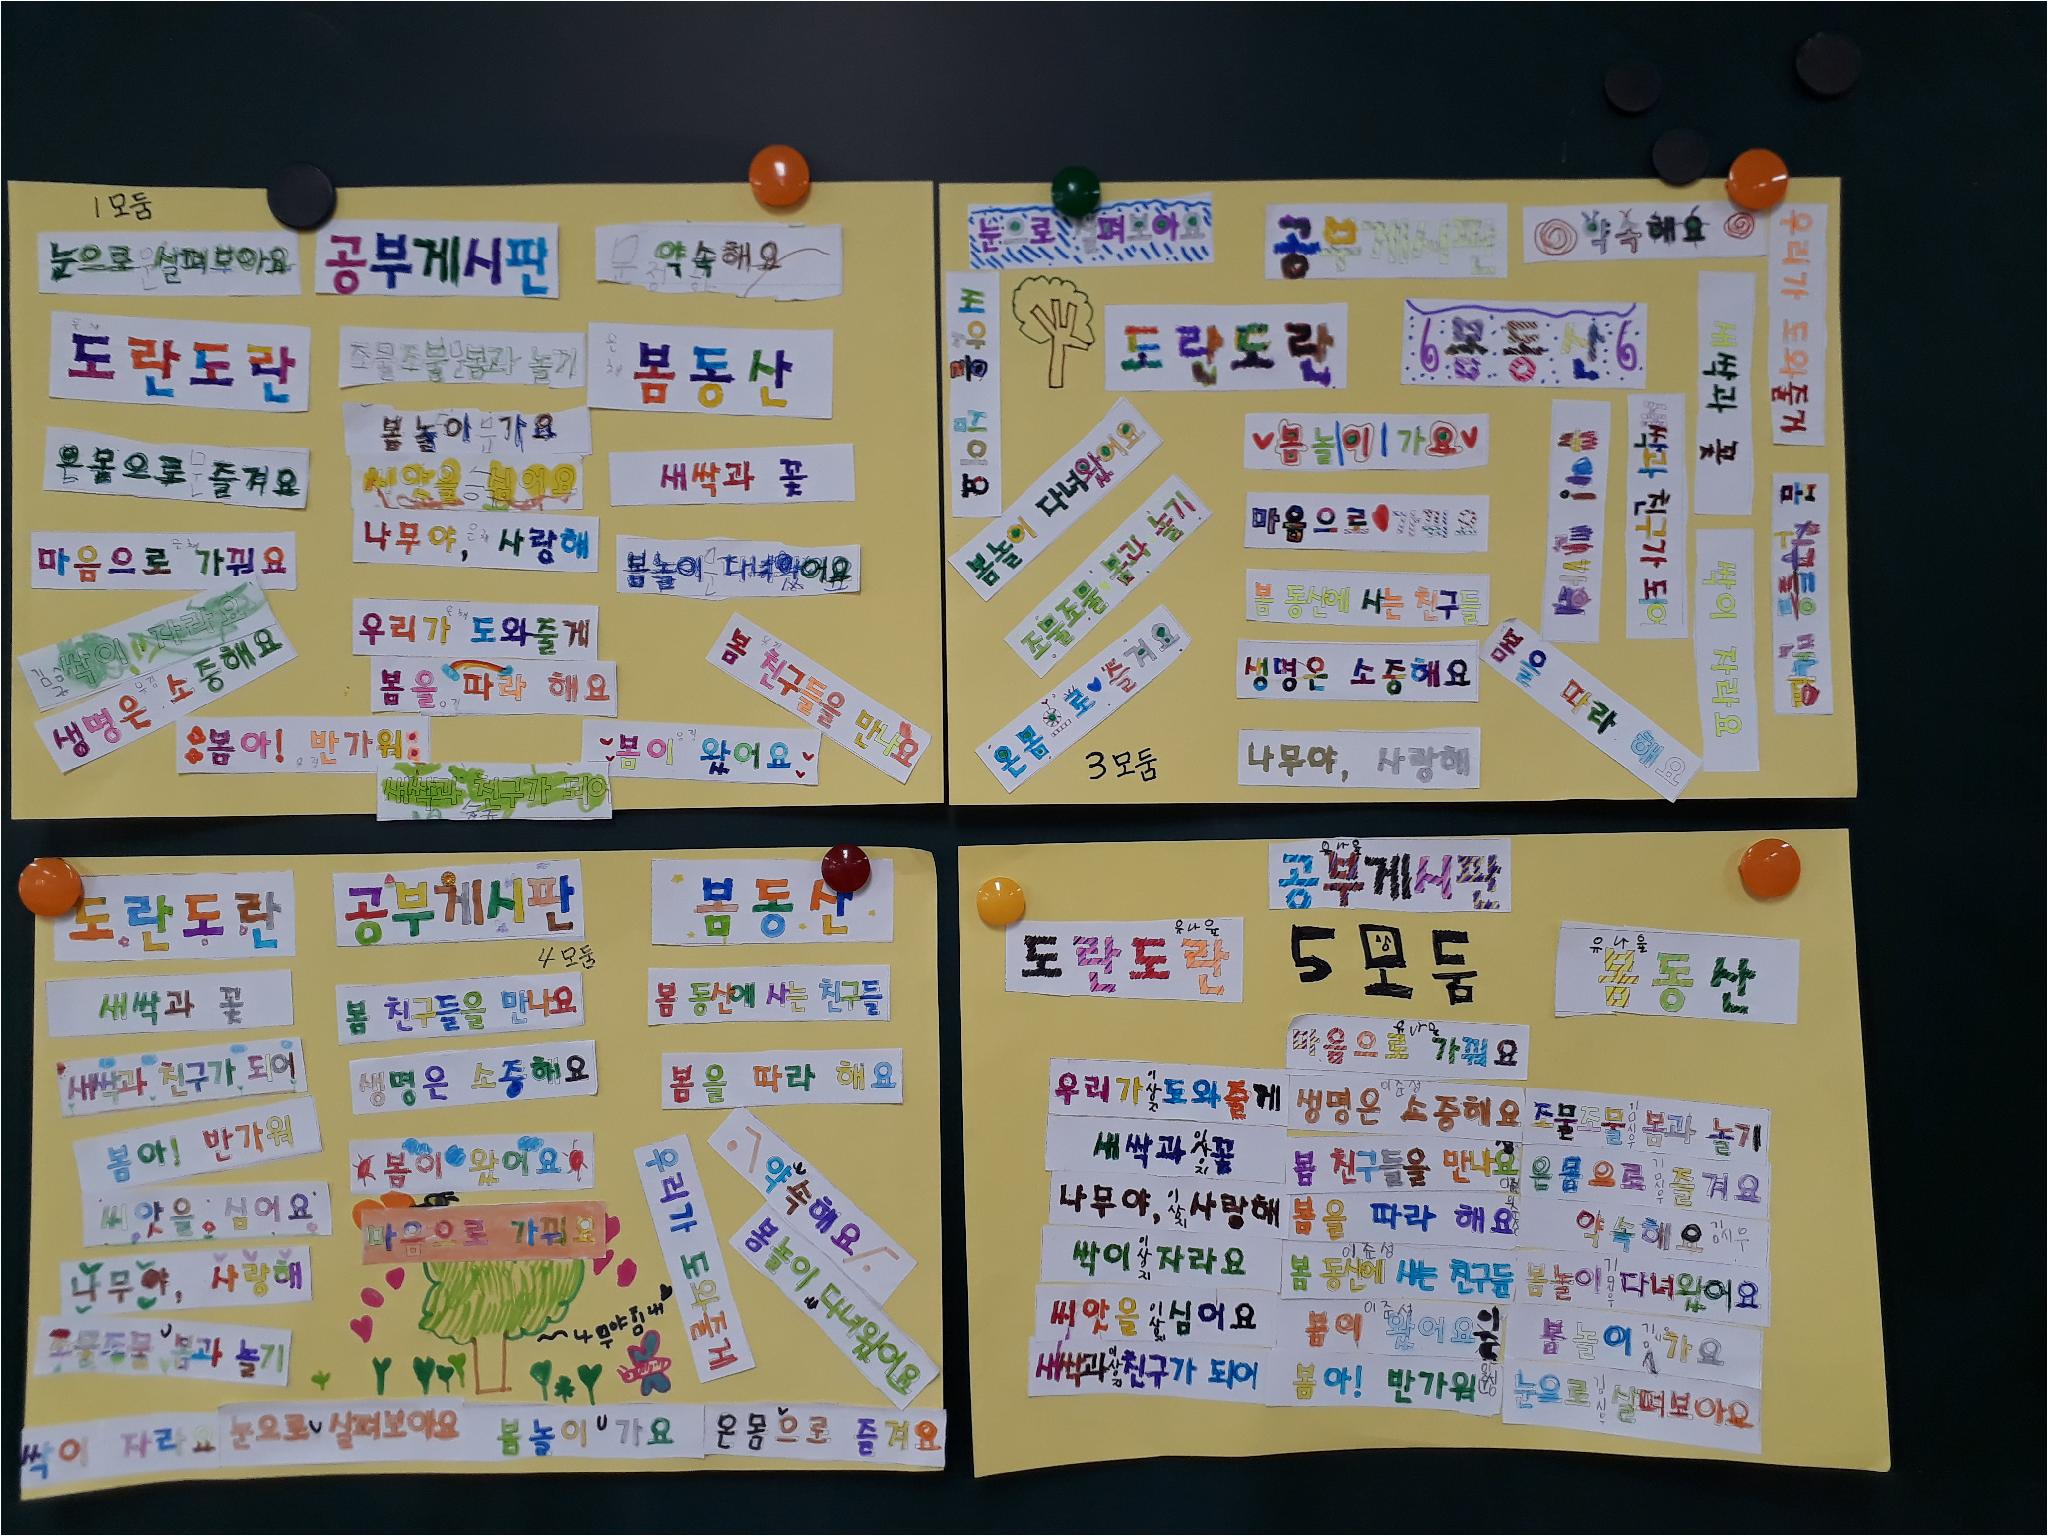 1모둠
눈으로 살펴보아요
공부게시판
약속해요
도란도란
조물조물 봄과 놀기
봄동산
봄놀이 가요
온몸으로 즐겨요
씨앗을 심어요
새싹과 꽃
나무야, 사랑해
마음으로 가꿔요
봄놀이 다녀왔어요
싹이 자라요
우리가 도와줄게
생명은 소중해요
봄을 따라 해요
봄 친구들을 만나요
봄아! 반가워
봄이 왔어요
새싹과 친구가 되어
눈으로 살펴보아요
공부게시판
약속해요
우리가 도와줄게
씨앗을 심어요
도란도란
봄동산
새싹과 꽃
봄놀이 다녀왔어요
봄놀이 가요
봄아! 반가워
새싹과 친구가 되어
조물조물 봄과 놀기
마음으로
봄 친구들을 만나요
봄 동산에 사는 친구들
싹이 자라요
온몸으로 즐겨요
생명은 소중해요
봄을 따라 해요
3모둠
나무야, 사랑해
도란도란
공부게시판
봄동산
4모둠
새싹과 꽃
봄 친구들을 만나요
봄 동산에 사는 친구들
새싹과 친구가 되어
생명은 소중해요
봄을 따라 해요
봄아! 반가워
봄이 왔어요
우리가 도와줄게
약속해요
씨앗을 심어요
마음으로 가꿔요
봄놀이 다녀왔어요
나무야, 사랑해
나무야 힘내
조물조물 봄과 놀기
싹이 자라요
눈으로 살펴보아요
봄놀이 가요
온몸으로 즐겨요
유나을
공부게시판
유나을
도란도란
5모둠
유나을
봄동산
유나을
마음으로 가꿔요
우리가 이상지 도와줄게
이준성
생명은 소중해요
조물조물 김시우 봄과 놀기
새싹과 이상지 꽃
봄 친구들을 만나요
온몸으로 김시우 즐겨요
나무야, 이상지 사랑해
봄을 따라 해요
약속해요 김시우
싹이 이상지 자라요
이준성
봄 동산에 사는 친구들
봄놀이 김시우 다녀왔어요
씨앗을 이상지 심어요
이준성
봄이 왔어요
봄놀이 김시우 가요
새싹과 이상지 친구가 되어
봄아! 반가워
눈으로 김시우 살펴보아요